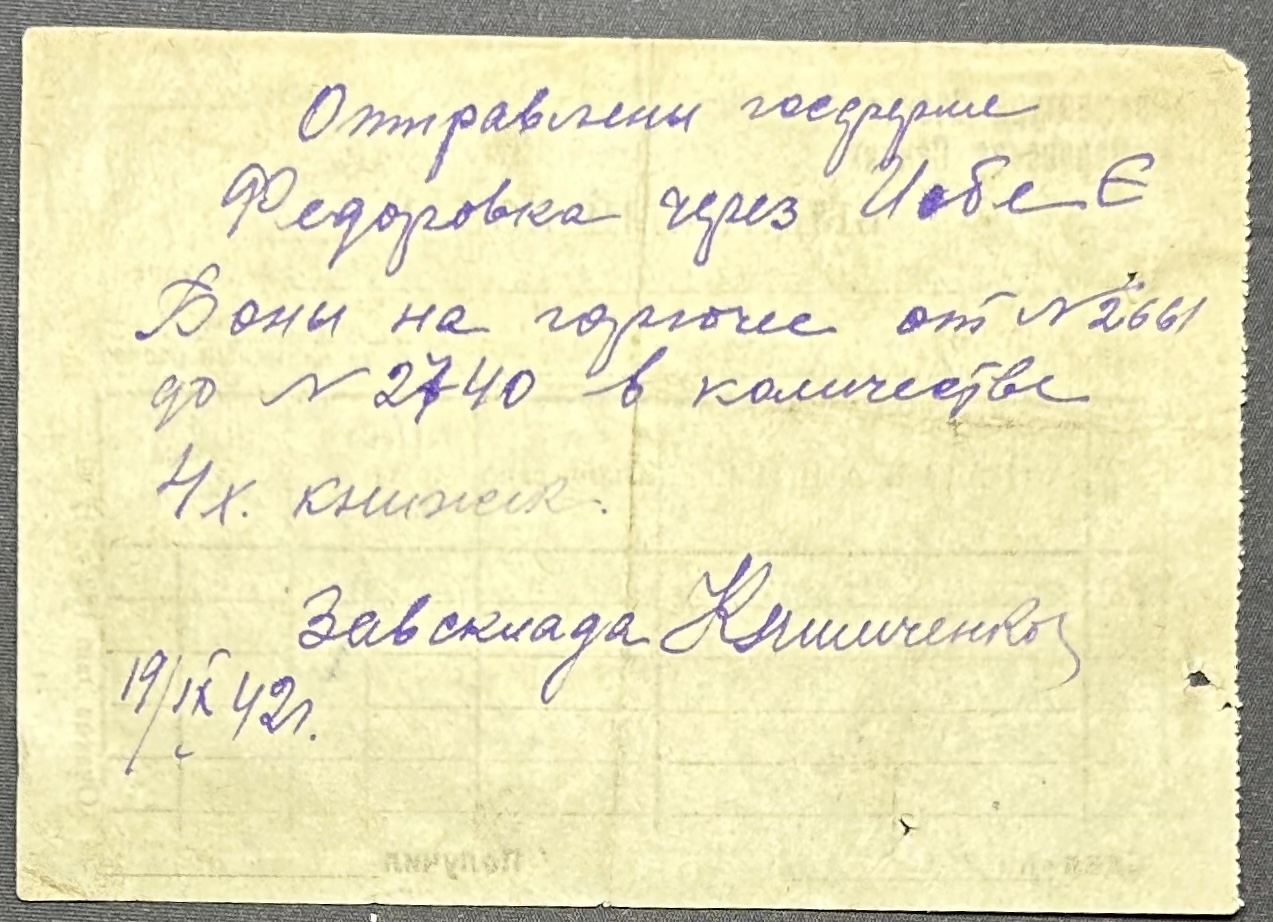 Отправлены госферме
Федоровка через Иобе Е
Боны на горючее от N 2661
до N 2740 в количестве
4х. книжек.
Завсклада
19/IX 42г.
Получил